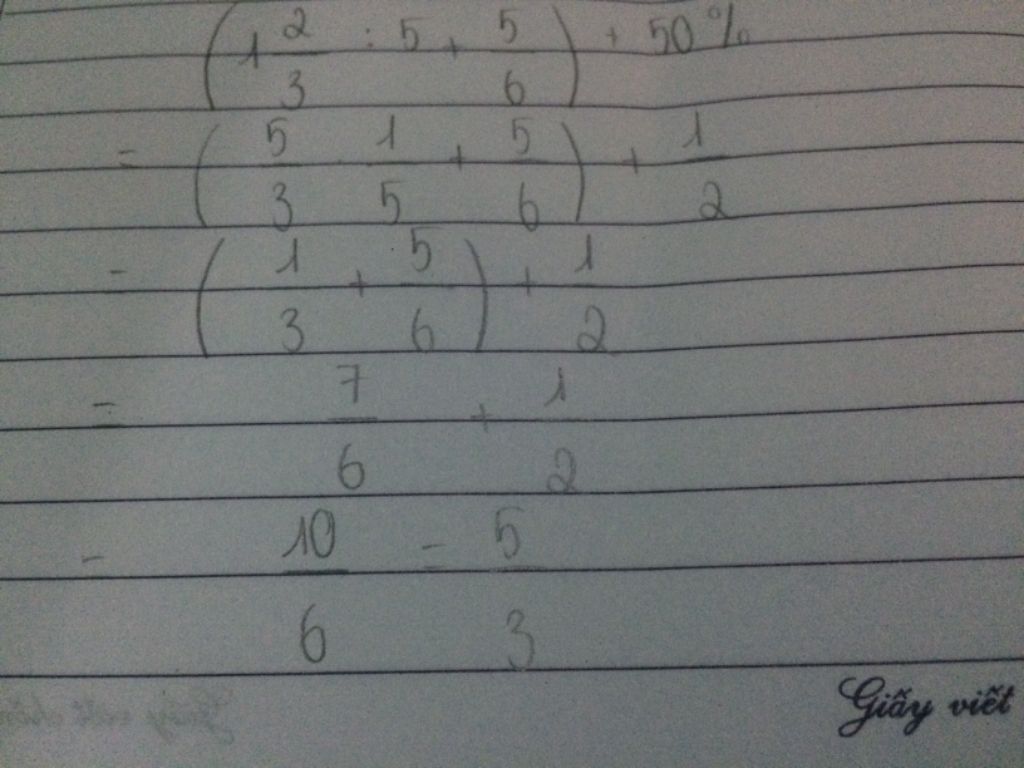 (1 2/3 : 5 + 5/6) + 50%
= (5/3 1/5 + 5/6) + 1/2
= (1/3 + 5/6) + 1/2
= 7/6 + 1/2
= 10/6 = 5/3
Giấy viết